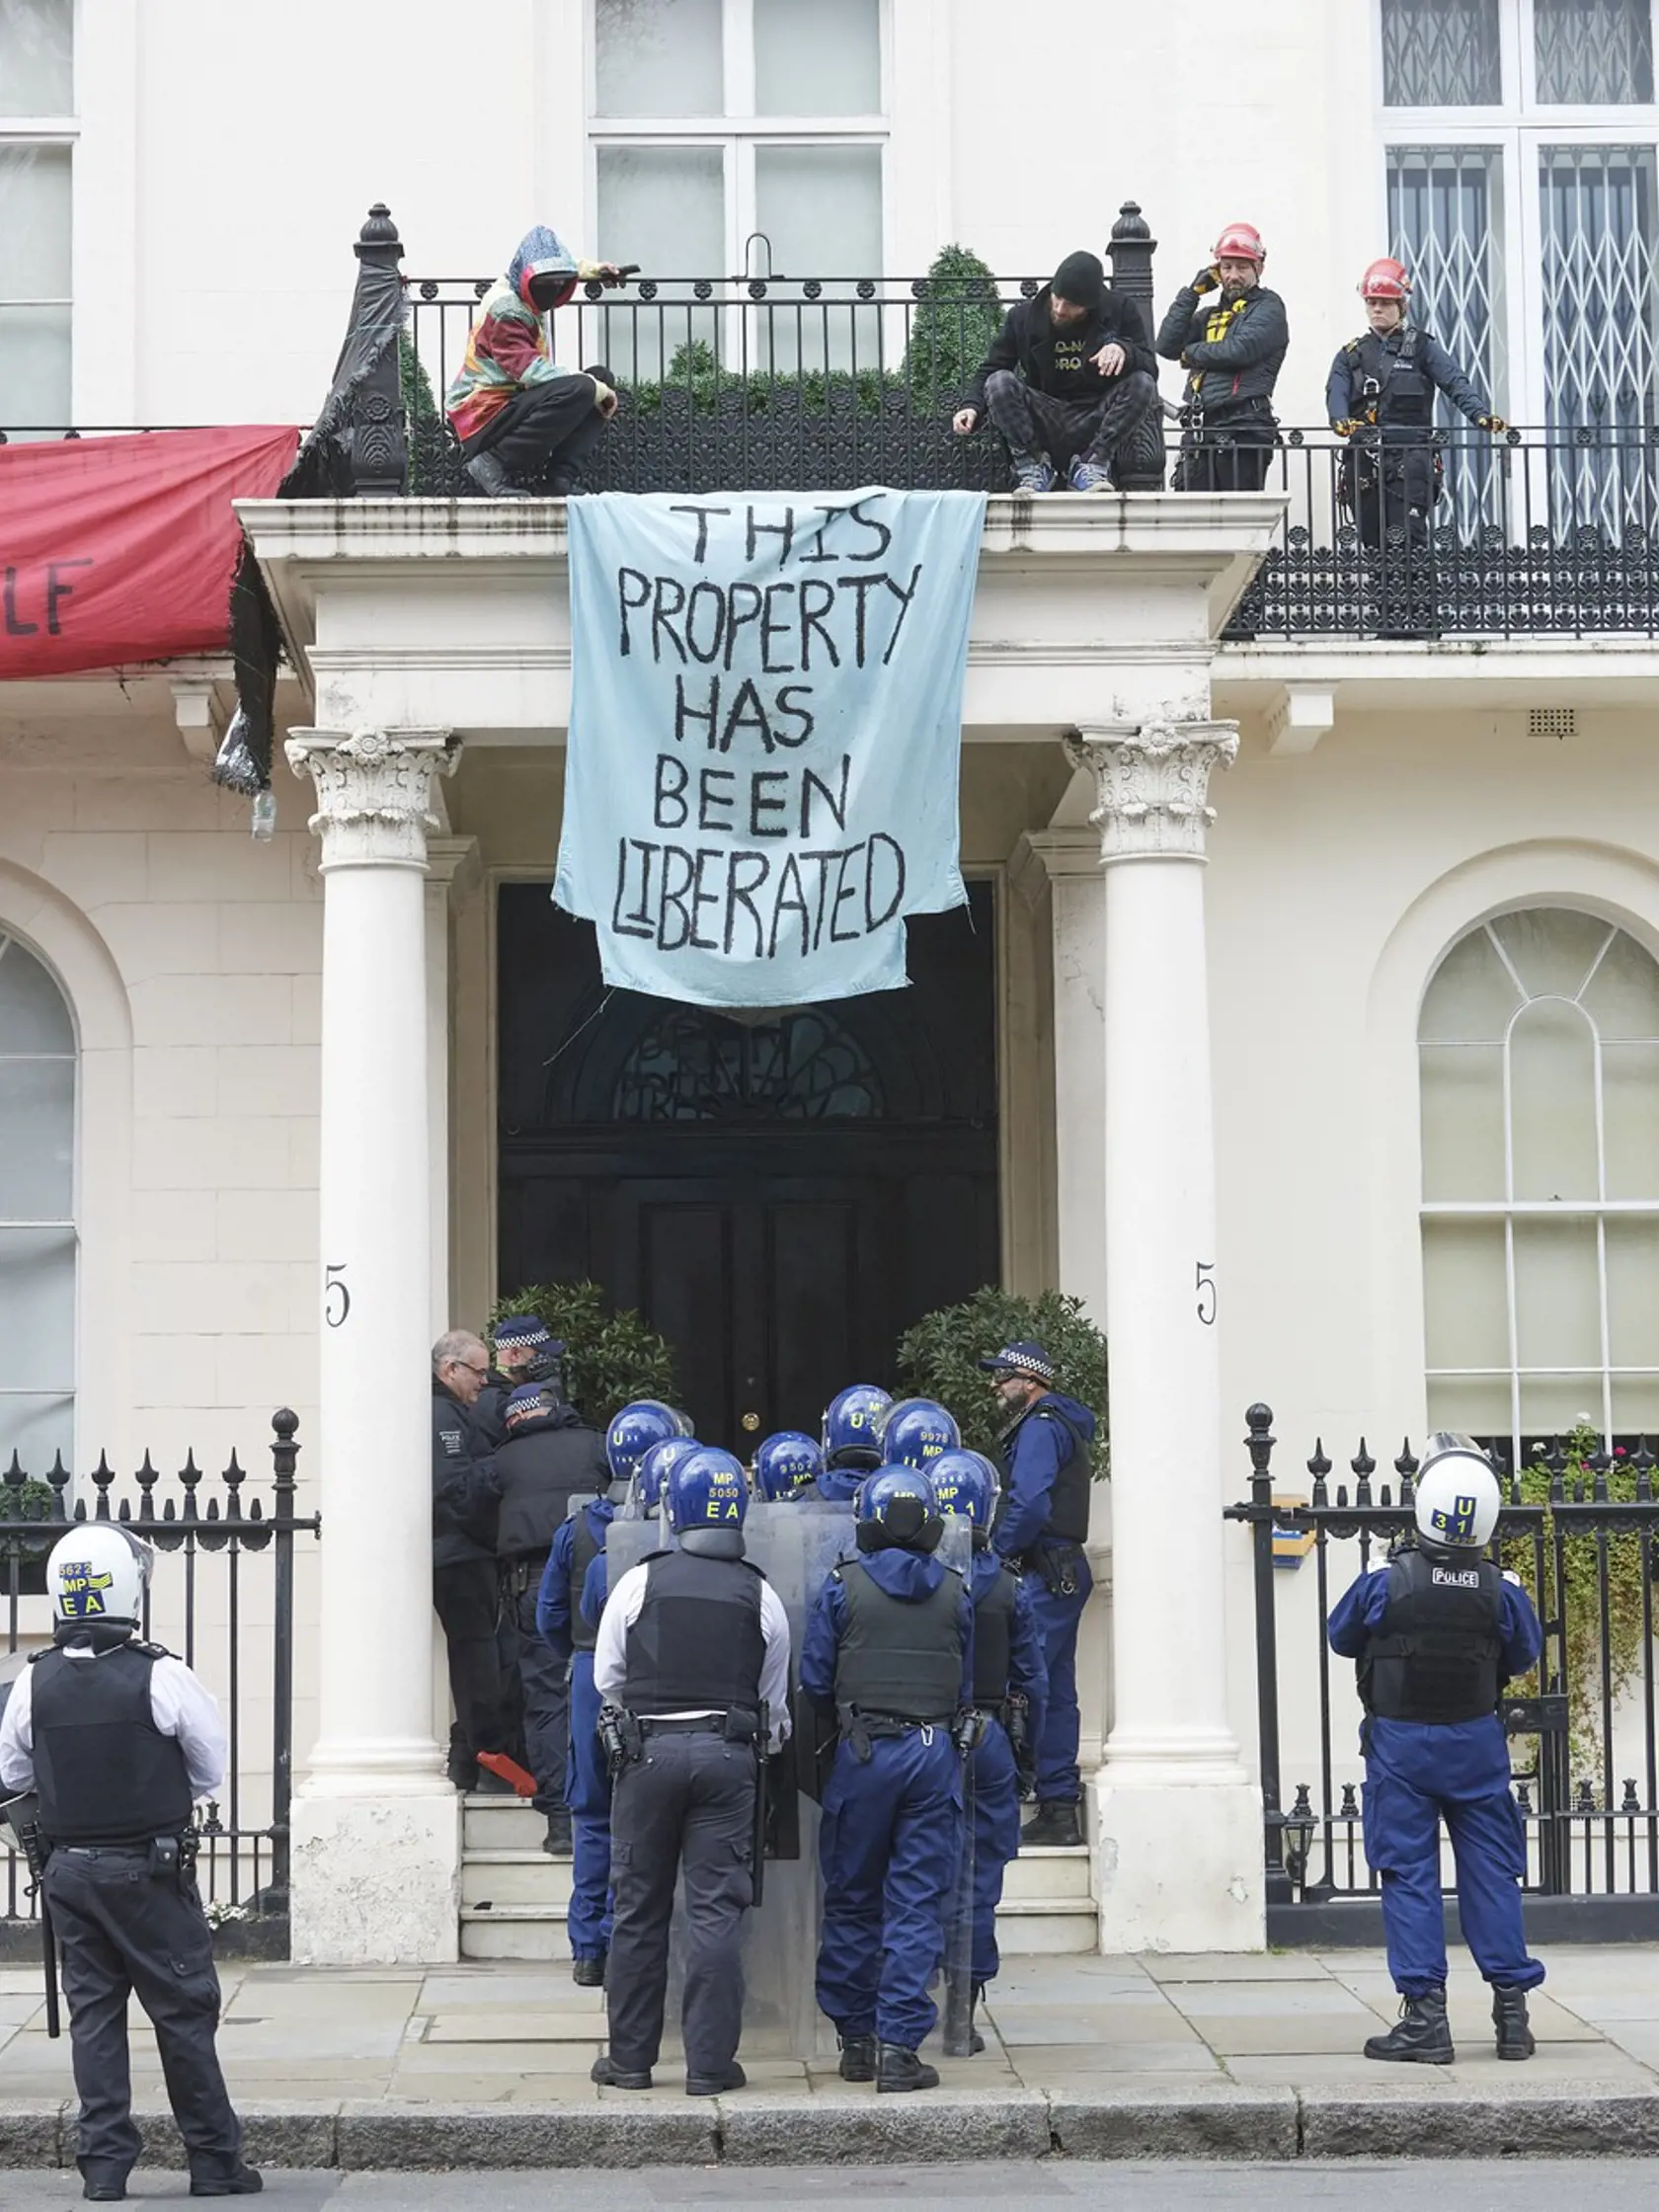 THIS
PROPERTY
HAS
BEEN
LIBERATED
LF
5
5
9978
MP
U
U
9502
MP
MP
5050
EA
MP
31
5622
MP
EA
U
31
POLICE